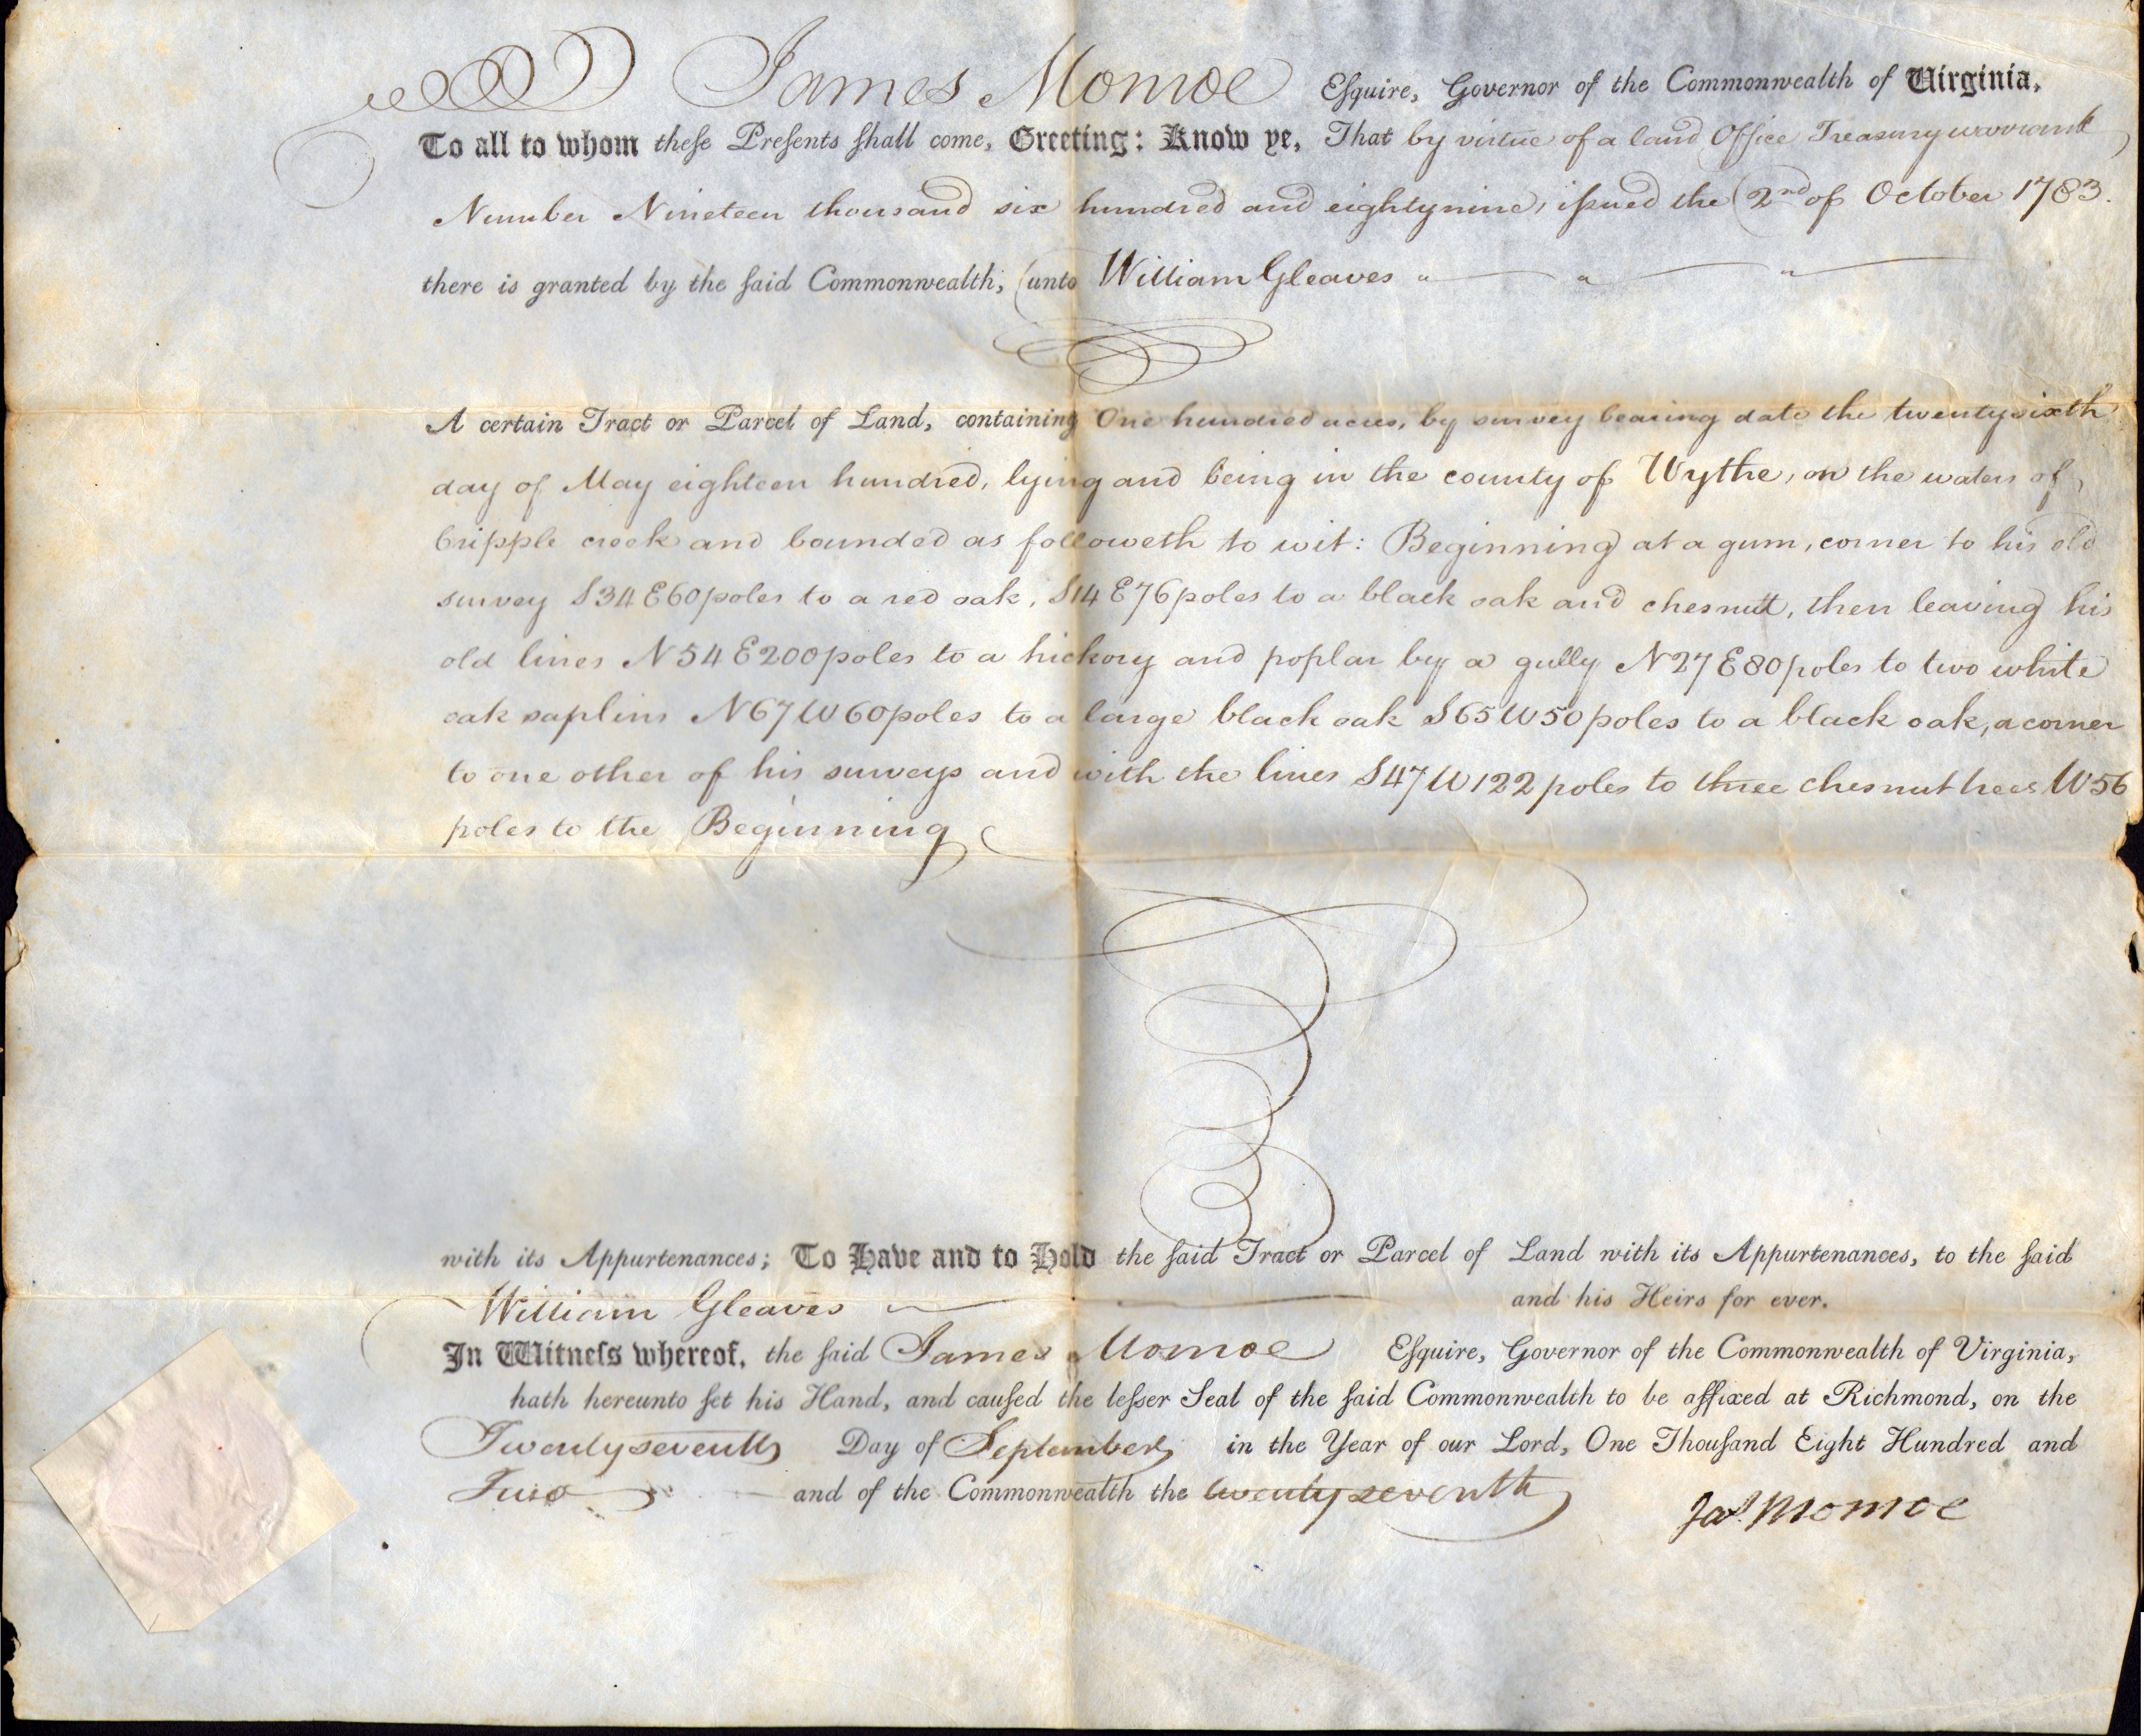 James Monroe Esquire, Governor of the Commonwealth of Virginia,
To all to whom these Presents shall come, Greeting: Know ye, That by virtue of a land Office Treasury warrant
Number Nineteen thousand six hundred and eightynine, issued the 2nd of October 1783.
there is granted by the said Commonwealth, unto William Gleaves
A certain Tract or Parcel of Land, containing One hundred acres, by survey bearing date the twentysixth
day of May eighteen hundred, lying and being in the county of Wythe, on the waters of
Cripple creek and bounded as followeth to wit: Beginning at a gum, corner to his old
survey S34E60poles to a red oak, S14E76poles to a black oak and chesnutt, then leaving his
old lines N54E200poles to a hickory and poplar by a gully N27E80poles to two white
oak saplins N67W60poles to a large black oak S65W50poles to a black oak, a corner
to one other of his surveys and with the lines S47W122poles to three chesnut trees W56
poles to the Beginning
with its Appurtenances; To Have and to Hold the said Tract or Parcel of Land with its Appurtenances, to the said
William Gleaves and his Heirs for ever.
In Witness whereof, the said James Monroe Esquire, Governor of the Commonwealth of Virginia,
hath hereunto set his Hand, and caused the lesser Seal of the said Commonwealth to be affixed at Richmond, on the
Twentyseventh Day of September in the Year of our Lord, One Thousand Eight Hundred and
Two and of the Commonwealth the twentyseventh
Jas. Monroe